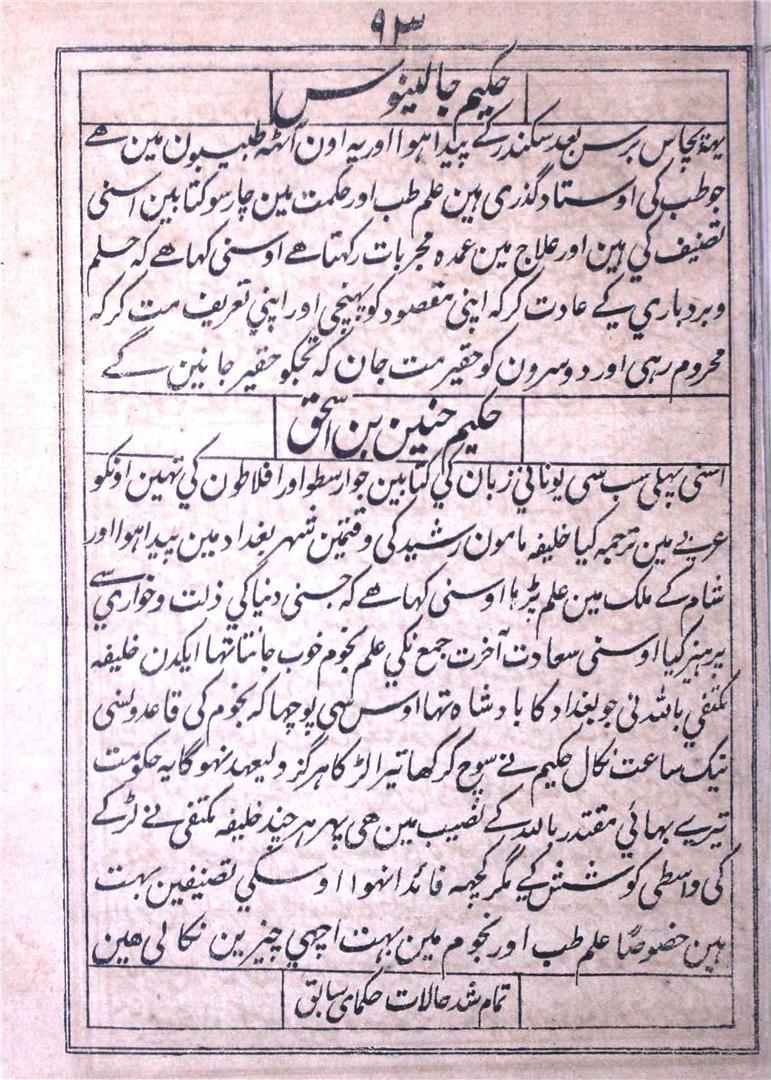 ۹۳
حکیم جالینوس
یہہ پچاس برس بعد سکندر کے پیدا ہوا اور یہ اون آٹہہ طبیبون مین ہے
جو طب کی اوستاد گذری ہین علم طب اور حکمت مین چار سو کتابین اسنی
تصنیف کي ہین اور علاج مین عمدہ مجربات رکہتا ہے اوسنی کہا ہے کہ حلم
و بردباري کے عادت کر کہ اپنی مقصود کو پہنچی اور اپني تعریف مت کر کہ
محروم رہی اور دوسرون کو حقیر مت جان کہ تجکو حقیر جانین گے
حکیم حنین بن اسحٰق
اسنی پہلی سب سی یوناني زبان کي کتابین جو ارسطو اور افلاطون کي تہین اونکو
عربے مین ترجمہ کیا خلیفہ مامون رشید کی وقتمین شہر بغداد مین پیدا ہوا اور
شام کے ملک مین علم پڑہا اوسنی کہا ہے کہ جسنی دنیا کي ذلت و خواري سے
پرہیز کیا اوسنی سعادت آخرت جمع نکي علم نجوم خوب جانتا تہا ایکدن خلیفہ
مکتفي باللہ نی جو بغداد کا بادشاہ تہا اوس سی پوچہا کہ نجوم کی قاعدوںسی
نیک ساعت نکال حکیم نے سوچ کر کہا تیرا لڑکا ہرگز ولیعہد نہوگا یہ حکومت
تیرے بہائي مقتدر باللہ کے نصیب مین ہی پہر ہر چند خلیفہ مکتفی نے لڑکے
کی واسطی کوشش کے مگر کچہہ فائدا نہوا اوسکي تصنیفین بہت
ہین خصوصًا علم طب اور نجوم مین بہت اچہي چیزین نکالی ہین
تمام شد حالات حکمای سابق